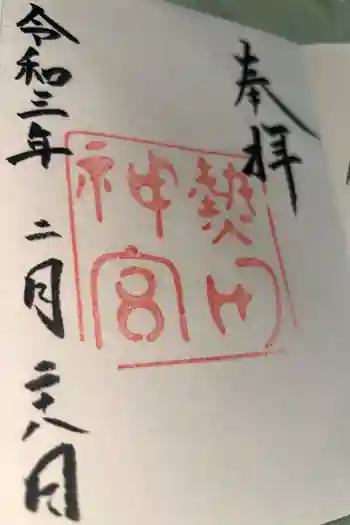 奉拝
熱田
神宮
令和三年二月二十八日